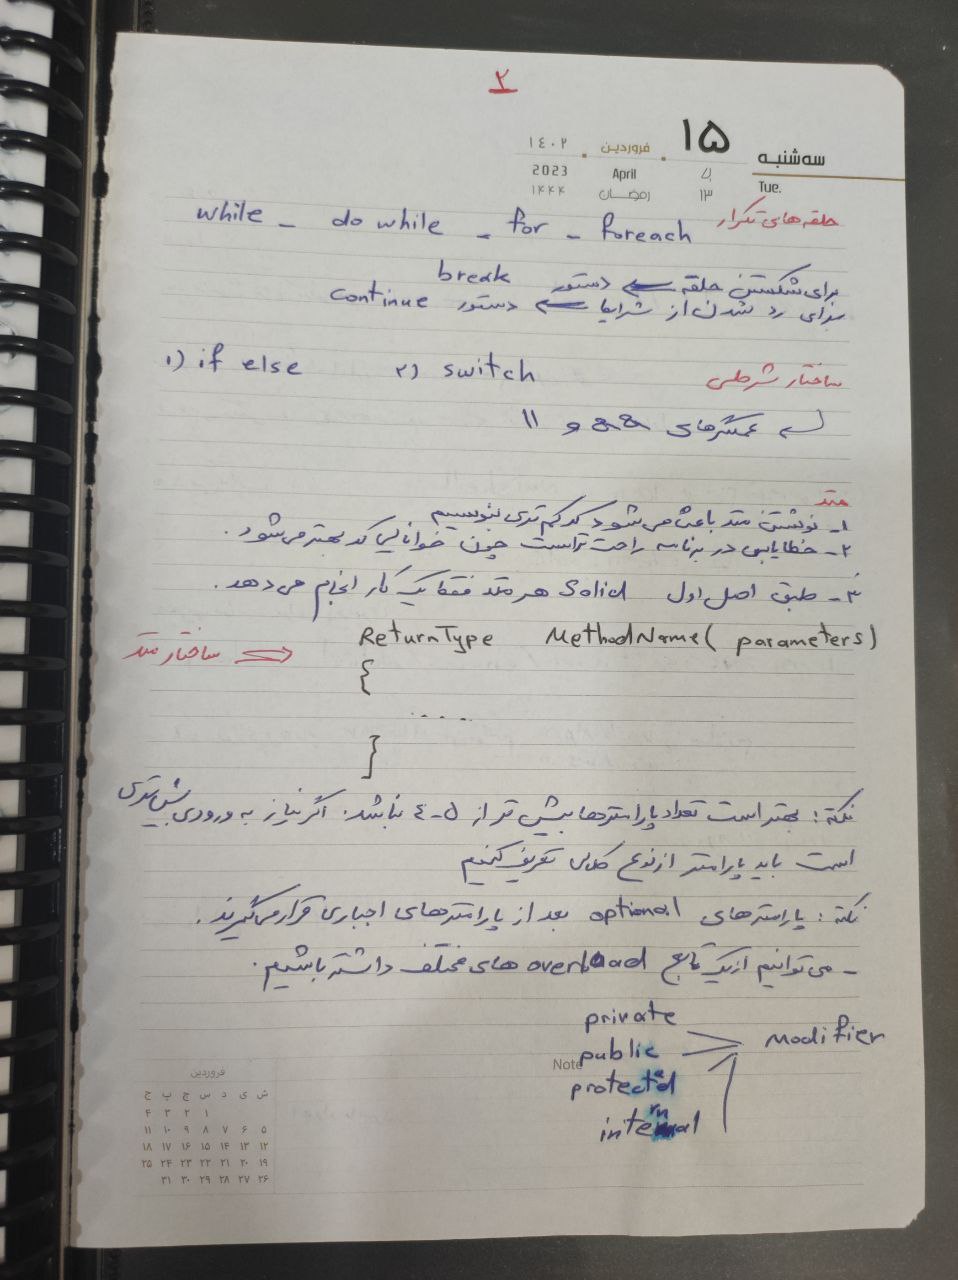 ۲
سه‌شنبه ۱۵ فروردین ۱۴۰۲
Tue. 4 April 2023
۱۳ رمضان ۱۴۴۴
حلقه های تکرار while - do while - for - foreach
برای شکستن حلقه ← دستور break
برای رد شدن از شرایط ← دستور continue
ساختار شرطی ۱) if else ۲) switch
عملگرهای && و ||
متد
۱- نوشتن متد باعث می شود کد کم تری بنویسیم
۲- خطایابی در برنامه راحت تر است چون خوانایی کد بهتر می شود.
۳- طبق اصل اول Solid هر متد فقط یک کار انجام می دهد.
ReturnType MethodName( parameters)
ساختار متد ⇐
{
. . . .
}
نکته: بهتر است تعداد پارامترها بیش تر از ۵-۴ نباشد. اگر نیاز به ورودی بیش تری
است باید پارامتر از نوع کلاس تعریف کنیم
نکته: پارامترهای optional بعد از پارامترهای اجباری قرار می گیرند.
- می توانیم از یک تابع overload های مختلف داشته باشیم.
private
Modifier
public
Note
protected
internal
فروردین
ش ی د س چ پ ج
۱ ۲ ۳ ۴
۵ ۶ ۷ ۸ ۹ ۱۰ ۱۱
۱۲ ۱۳ ۱۴ ۱۵ ۱۶ ۱۷ ۱۸
۱۹ ۲۰ ۲۱ ۲۲ ۲۳ ۲۴ ۲۵
۲۶ ۲۷ ۲۸ ۲۹ ۳۰ ۳۱